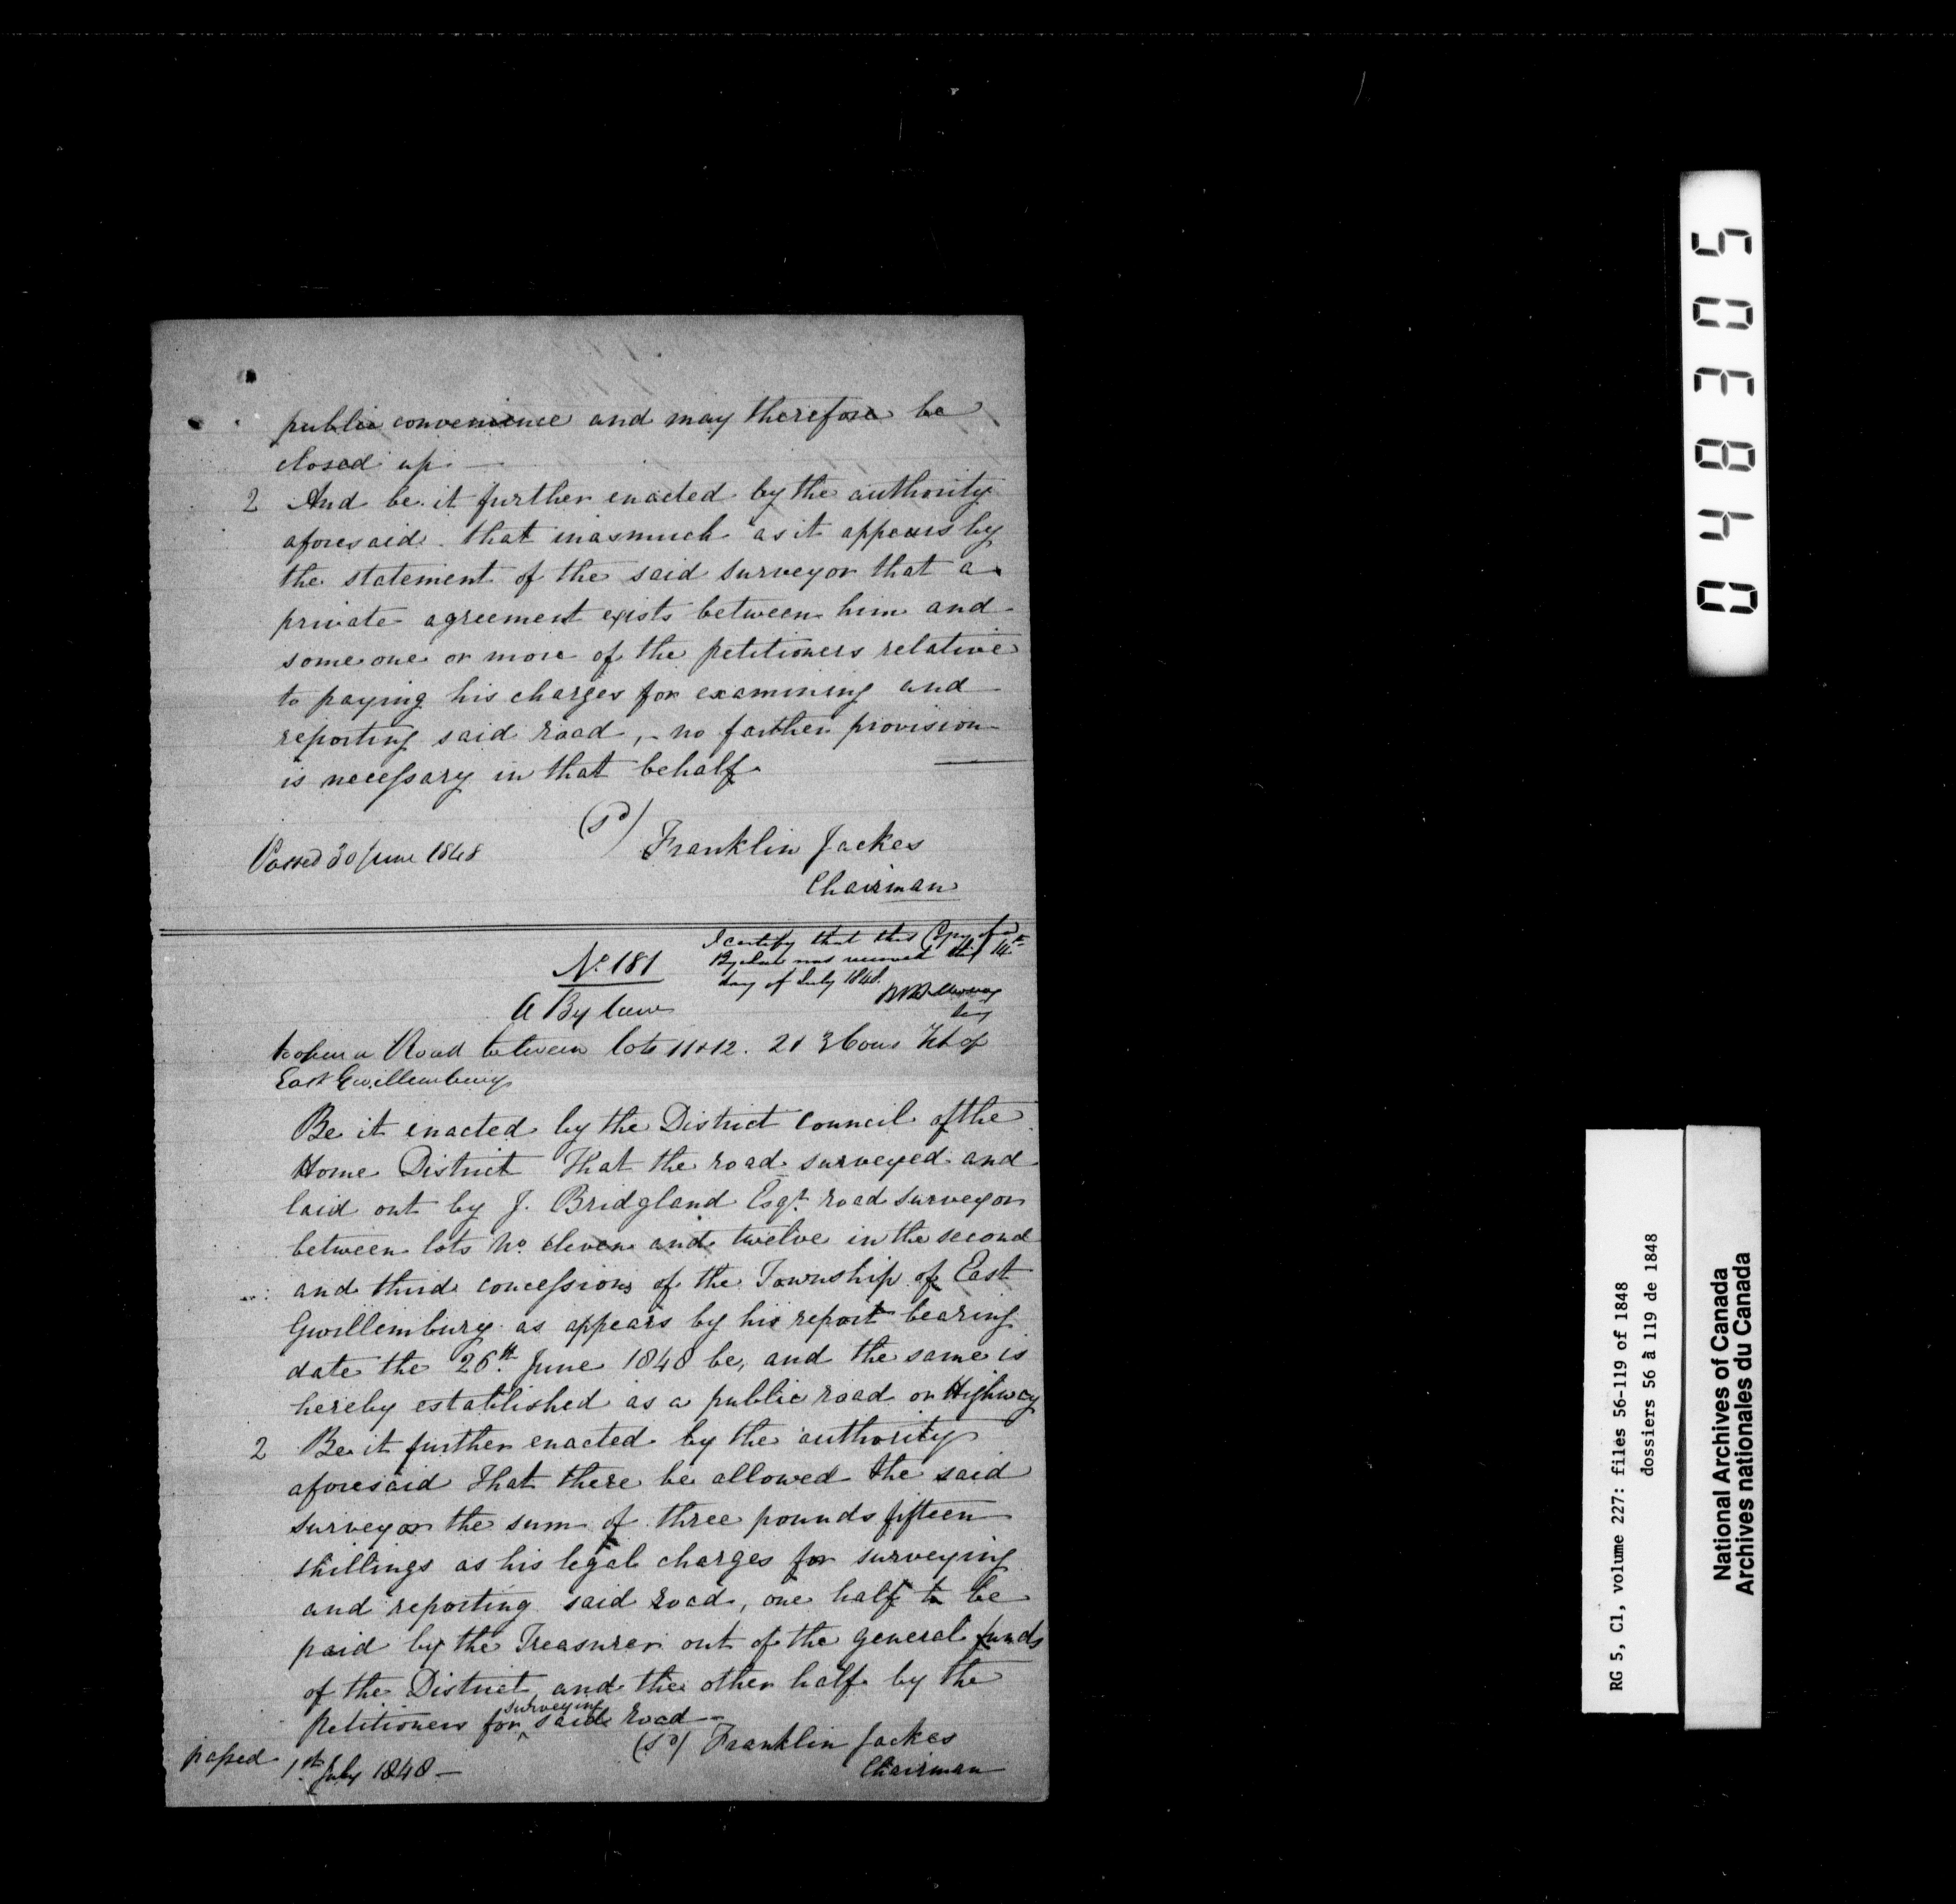 public convenience and may therefore be
closed up. —
2 And be it further enacted by the authority
aforesaid that inasmuch as it appears by
the statement of the said surveyor that a
private agreement exists between him and
some one or more of the petitioners relative
to paying his charges for examining and
reporting said road, - no farther provision
is necessary in that behalf
(Sd) Franklin Jackes
Passed 30 June 1848
Chairman
No. 181
I certify that this Copy of a
By law was received this 14th
day of July 1848.
A By law
to open a Road between lots 11 & 12. 2 & 3 Cons of
East Gwillembury
Be it enacted by the District Council of the
Home District That the road surveyed and
laid out by J. Bridgland Esqr. road surveyor
between lots No. eleven and twelve in the second
and third concessions of the Township of East
Gwillembury as appears by his report bearing
date the 26th June 1848 be, and the same is
hereby established as a public road or Highway
2 Be it further enacted by the authority
aforesaid That there be allowed the said
surveyor the sum of three pounds fifteen
shillings as his legal charges for surveying
and reporting said road, one half to be
paid by the Treasurer out of the general funds
of the District and the other half by the
petitioners for surveying said road —
(Sd) Franklin Jackes
passed 1st July 1848 —
Chairman
048305
RG 5, C1, volume 227: files 56-119 of 1848
dossiers 56 à 119 de 1848
National Archives of Canada
Archives nationales du Canada